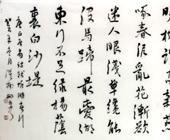 啄春泥亂花漸欲
迷人眼淺草纔能
沒馬蹄最愛湖
東行不足綠楊蔭
裏白沙堤